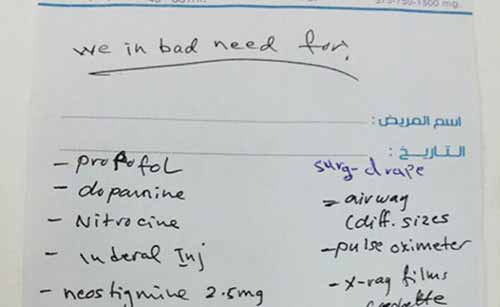 375-750-1500 mg.
we in bad need for.
اسم المريض :
التاريخ :
- propofol
- dopamine
- Nitrocine
- Inderal Inj
- neostigmine 2.5mg
surg-drape
= airway
(diff. sizes
- pulse oximeter
- x-ray films